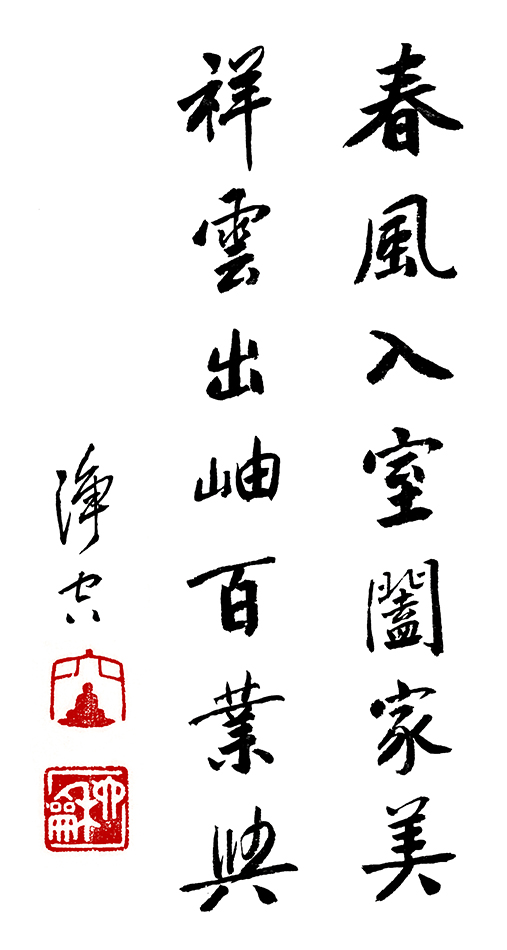 春風入室闔家美
祥雲出岫百業興
淨空